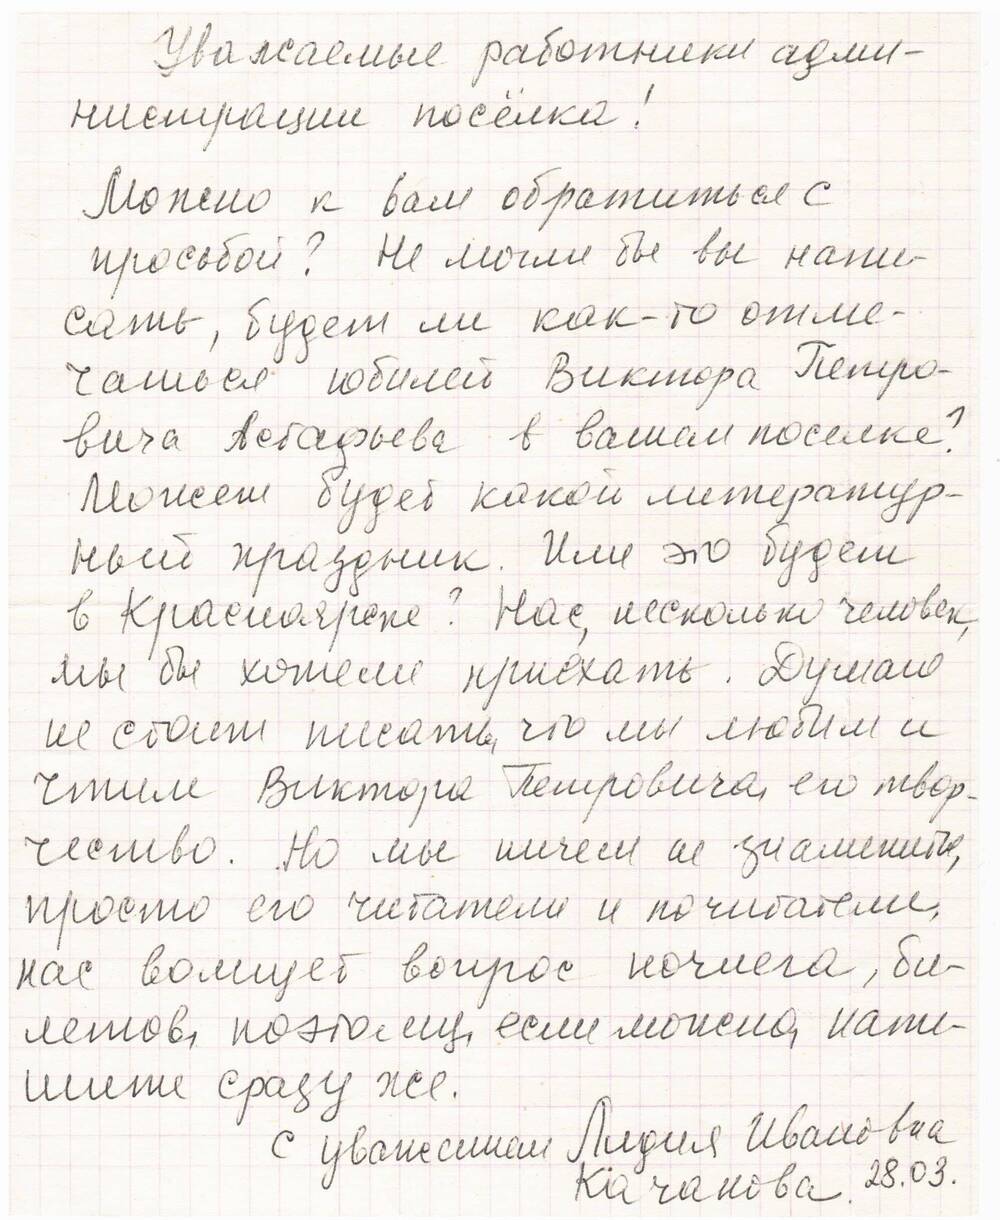 Уважаемые работники адми-
нистрации посёлка!
Можно к вам обратиться с
просьбой? Не могли бы вы напи-
сать, будет ли как-то отме-
чаться юбилей Виктора Петро-
вича Астафьева в вашем поселке?
Может будет какой литератур-
ный праздник. Или это будет
в Красноярске? Нас, несколько человек,
мы бы хотели приехать. Думаю
не стоит писать, что мы любим и
чтим Виктора Петровича, его твор-
чество. Но мы ничем не знамениты,
просто его читатели и почитатели,
нас волнует вопрос ночлега, би-
летов, поэтому, если можно, напи-
шите сразу же.
С уважением Лидия Ивановна
Качанова. 28.03.